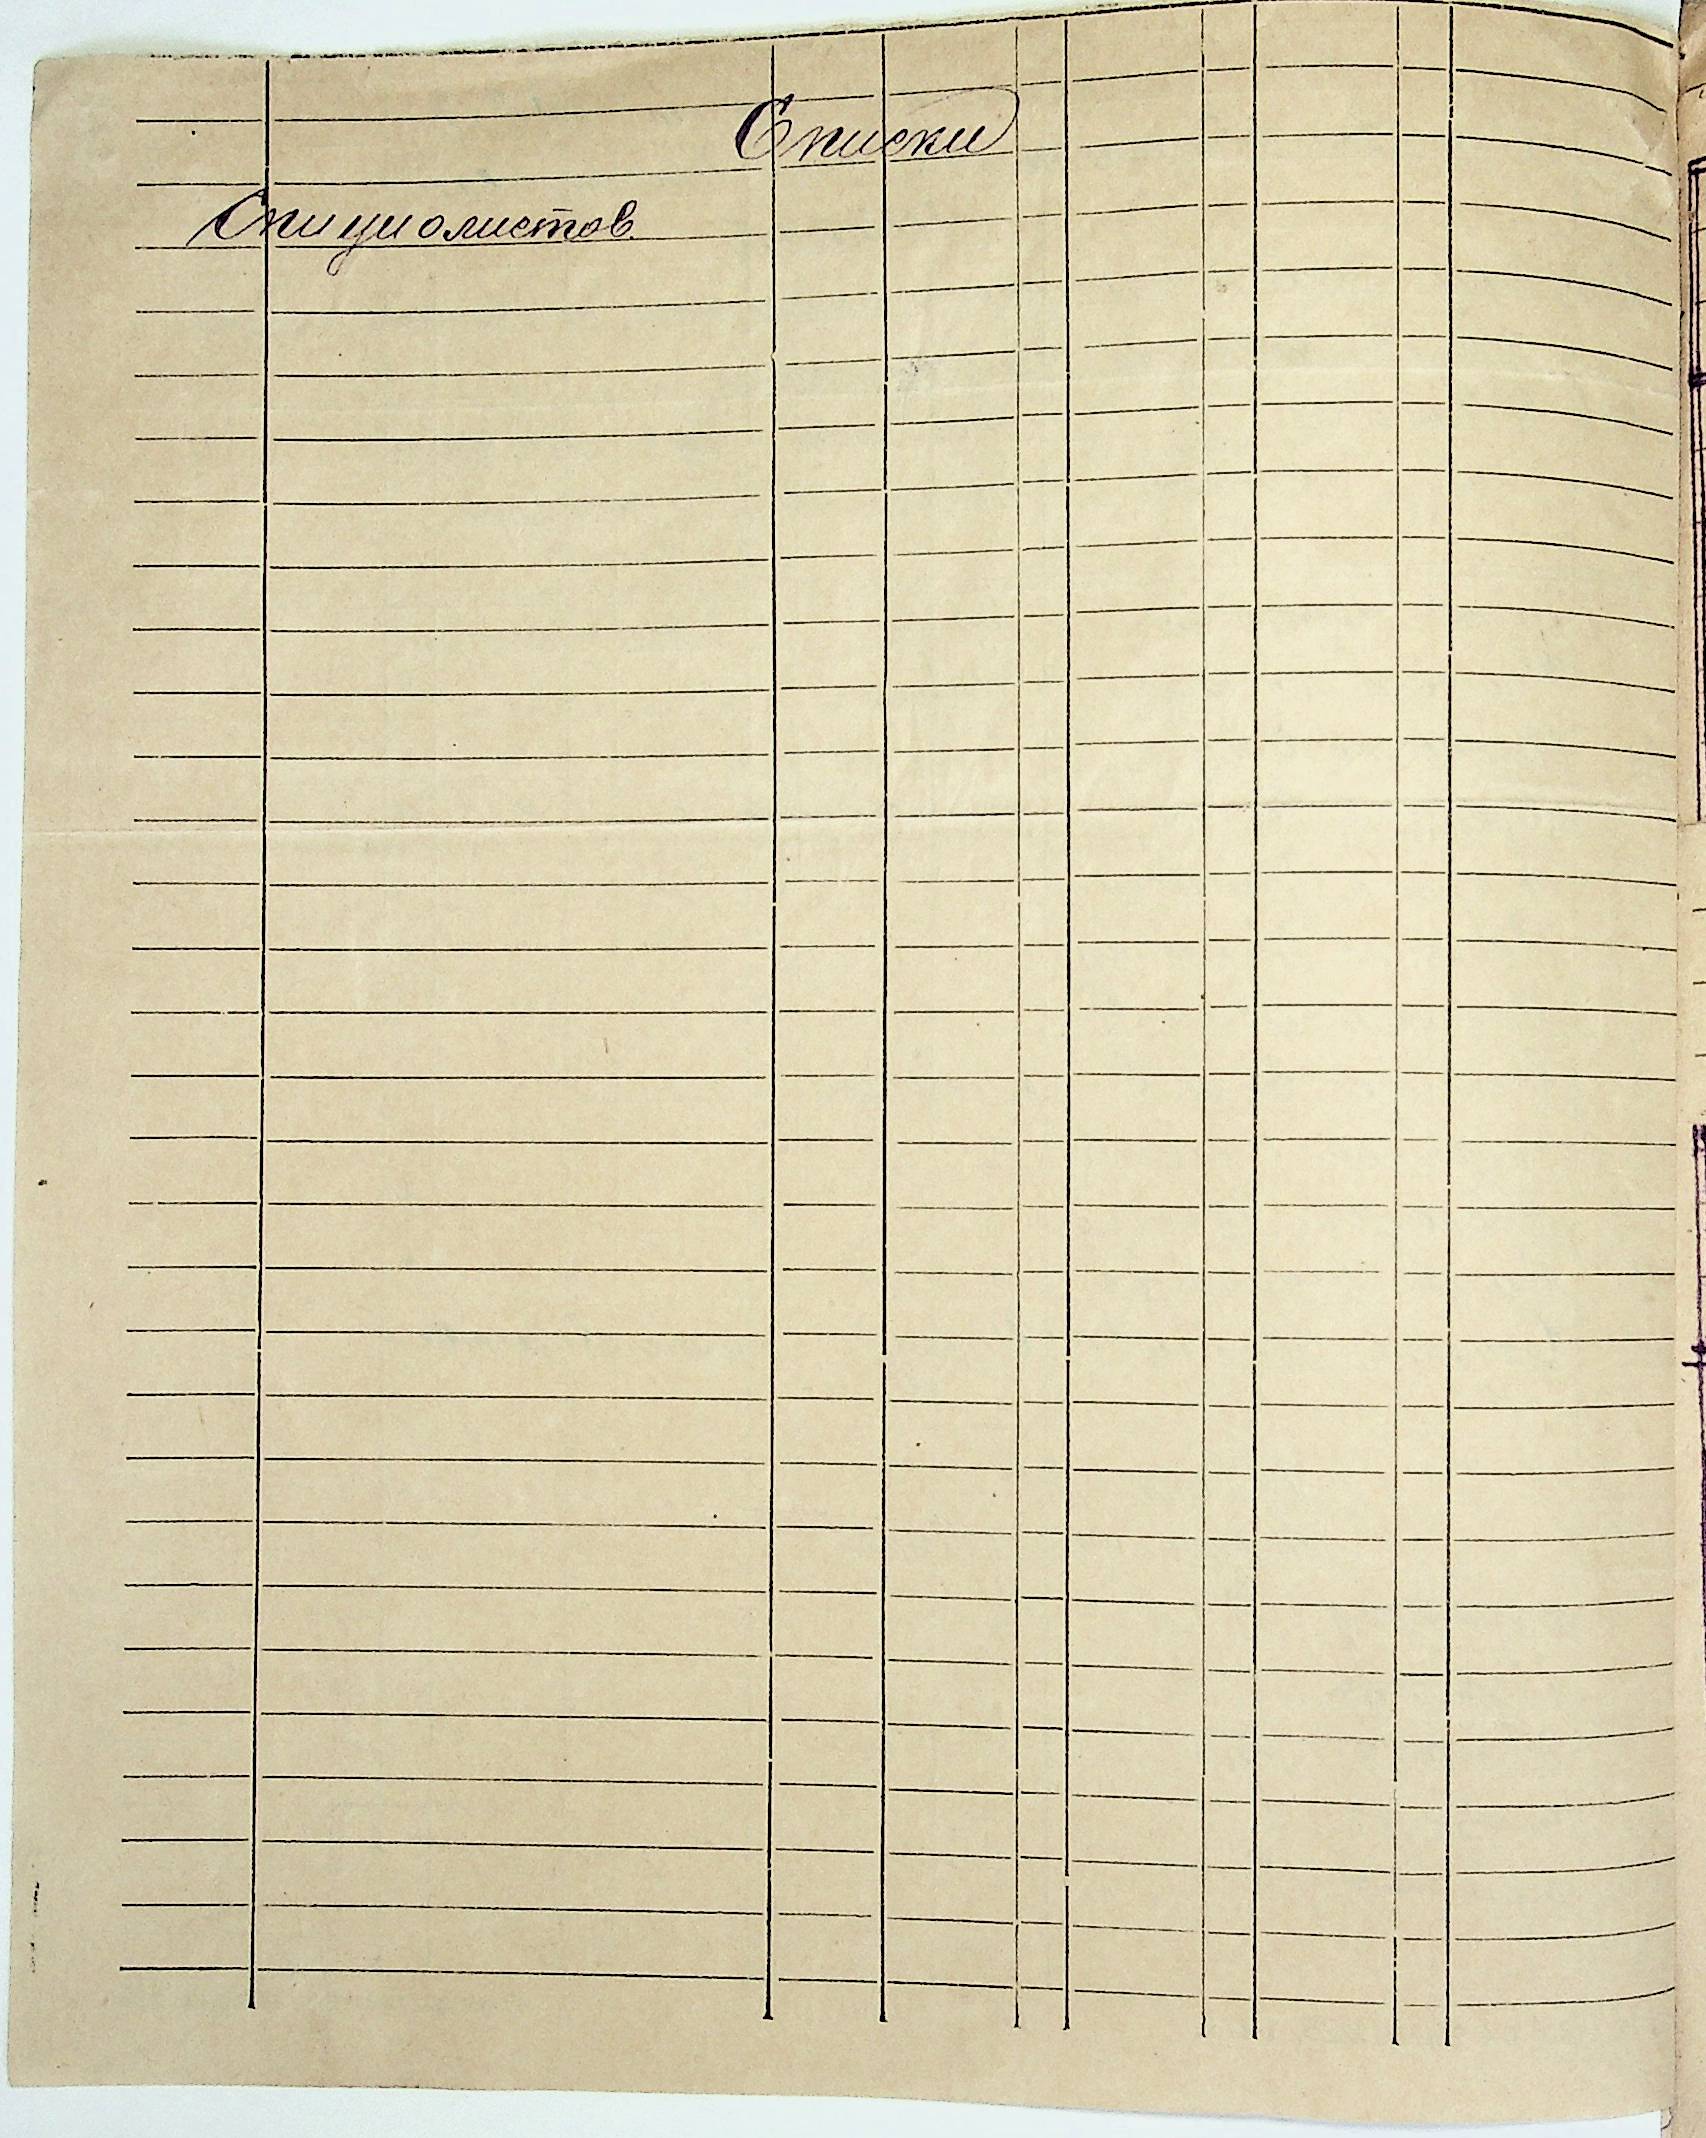 Списки
Спициолистов.